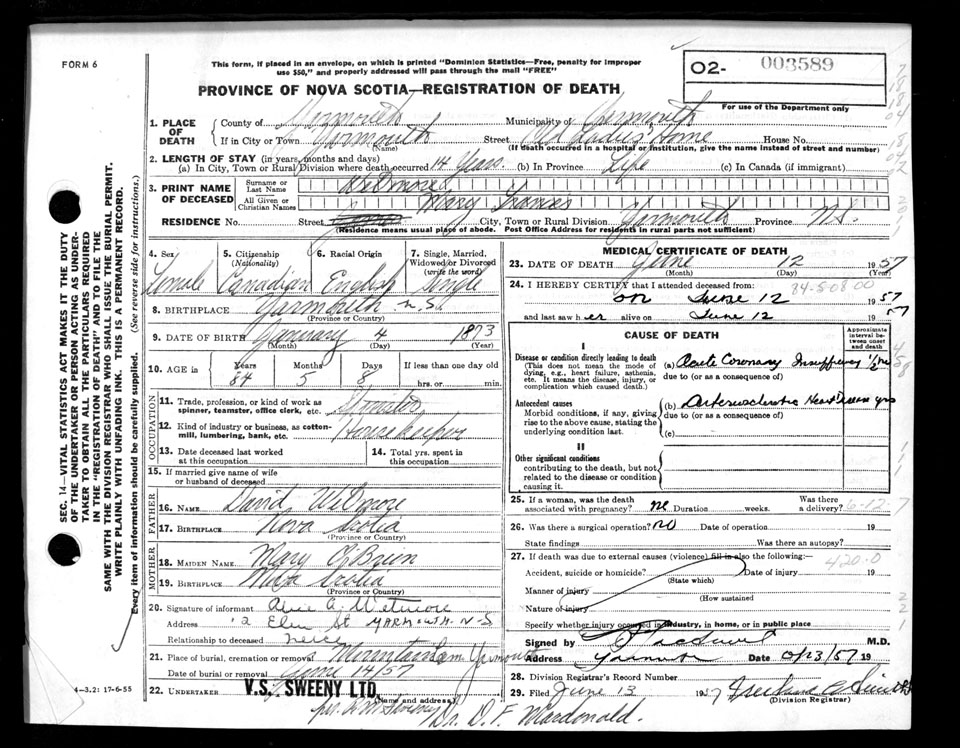 FORM 6
This form, if placed in an envelope, on which is printed "Dominion Statistics—Free, penalty for improper
use $50," and properly addressed will pass through the mail "FREE"
02- 003589
For use of the Department only
PROVINCE OF NOVA SCOTIA—REGISTRATION OF DEATH
1. PLACE OF DEATH { County of Yarmouth Municipality of Yarmouth
If in City or Town Yarmouth (Name) Street Old Ladies' Home House No.
(If death occurred in a hospital or institution, give the name instead of street and number)
2. LENGTH OF STAY (in years, months and days)
(a) In City, Town or Rural Division where death occurred 14 Years (b) In Province Life (c) In Canada (if immigrant)
3. PRINT NAME OF DECEASED { Surname or Last Name Wetmore
All Given or Christian Names Mary Frances
RESIDENCE No. Street City, Town or Rural Division Yarmouth Province N.S.
(Residence means usual place of abode. Post Office Address for residents in rural parts not sufficient)
4. Sex Female
5. Citizenship (Nationality) Canadian
6. Racial Origin English
7. Single, Married, Widowed or Divorced (write the word) Single
8. BIRTHPLACE Yarmouth N.S.
(Province or Country)
9. DATE OF BIRTH January 4 1873
(Month) (Day) (Year)
10. AGE in { Years 84 Months 5 Days 8 If less than one day old
hrs. or min.
OCCUPATION
11. Trade, profession, or kind of work as spinner, teamster, office clerk, etc.
12. Kind of industry or business, as cotton-mill, lumbering, bank, etc. Housekeeper
13. Date deceased last worked at this occupation
14. Total yrs. spent in this occupation
15. If married give name of wife or husband of deceased
FATHER
16. NAME David Wetmore
17. BIRTHPLACE Nova Scotia
(Province or Country)
MOTHER
18. MAIDEN NAME Mary O'Brien
19. BIRTHPLACE Nova Scotia
(Province or Country)
20. Signature of informant Alice A. Wetmore
Address 12 Elm St YARMOUTH N-S
Relationship to deceased neice
21. Place of burial, cremation or removal Mountain Cem. Yarmouth
Date of burial or removal June 14/57
22. UNDERTAKER V.S. SWEENY LTD.
(Name and address)
4-3.2: 17-6-55
MEDICAL CERTIFICATE OF DEATH
23. DATE OF DEATH June 12 1957
(Month) (Day) (Year)
24. I HEREBY CERTIFY that I attended deceased from:
84-5-08 00
on June 12 1957
and last saw her alive on June 12 1957
CAUSE OF DEATH
Approximate interval between onset and death
I
Disease or condition directly leading to death
(This does not mean the mode of dying, e.g., heart failure, asthenia, etc. It means the disease, injury, or complication which caused death.)
(a) Acute Coronary Insufficiency 1/2 hr
due to (or as a consequence of)
Antecedent causes
Morbid conditions, if any, giving rise to the above cause, stating the underlying condition last.
(b) Arteriosclerotic Heart Disease yrs
due to (or as a consequence of)
(c)
II
Other significant conditions
contributing to the death, but not related to the disease or condition causing it.
25. If a woman, was the death associated with pregnancy? no Duration weeks. Was there a delivery?
6-12-7
26. Was there a surgical operation? no Date of operation 19
State findings Was there an autopsy?
27. If death was due to external causes (violence) fill in also the following:
420-0
Accident, suicide or homicide? Date of injury 19
(State which)
Manner of injury
(How sustained
Nature of injury
Specify whether injury occurred in industry, in home, or in public place
Signed by M.D.
Address Yarmouth Date 19
28. Division Registrar's Record Number
29. Filed June 13 1957
(Division Registrar)
Dr. D. F. Macdonald.
SEC. 14—VITAL STATISTICS ACT MAKES IT THE DUTY
OF THE UNDERTAKER OR PERSON ACTING AS UNDER-
TAKER TO OBTAIN ALL THE PARTICULARS REQUIRED
IN THE "REGISTRATION OF DEATH" AND TO FILE THE
SAME WITH THE DIVISION REGISTRAR WHO SHALL ISSUE THE BURIAL PERMIT.
WRITE PLAINLY WITH UNFADING INK. THIS IS A PERMANENT RECORD.
Every item of information should be carefully supplied. (See reverse side for instructions.)